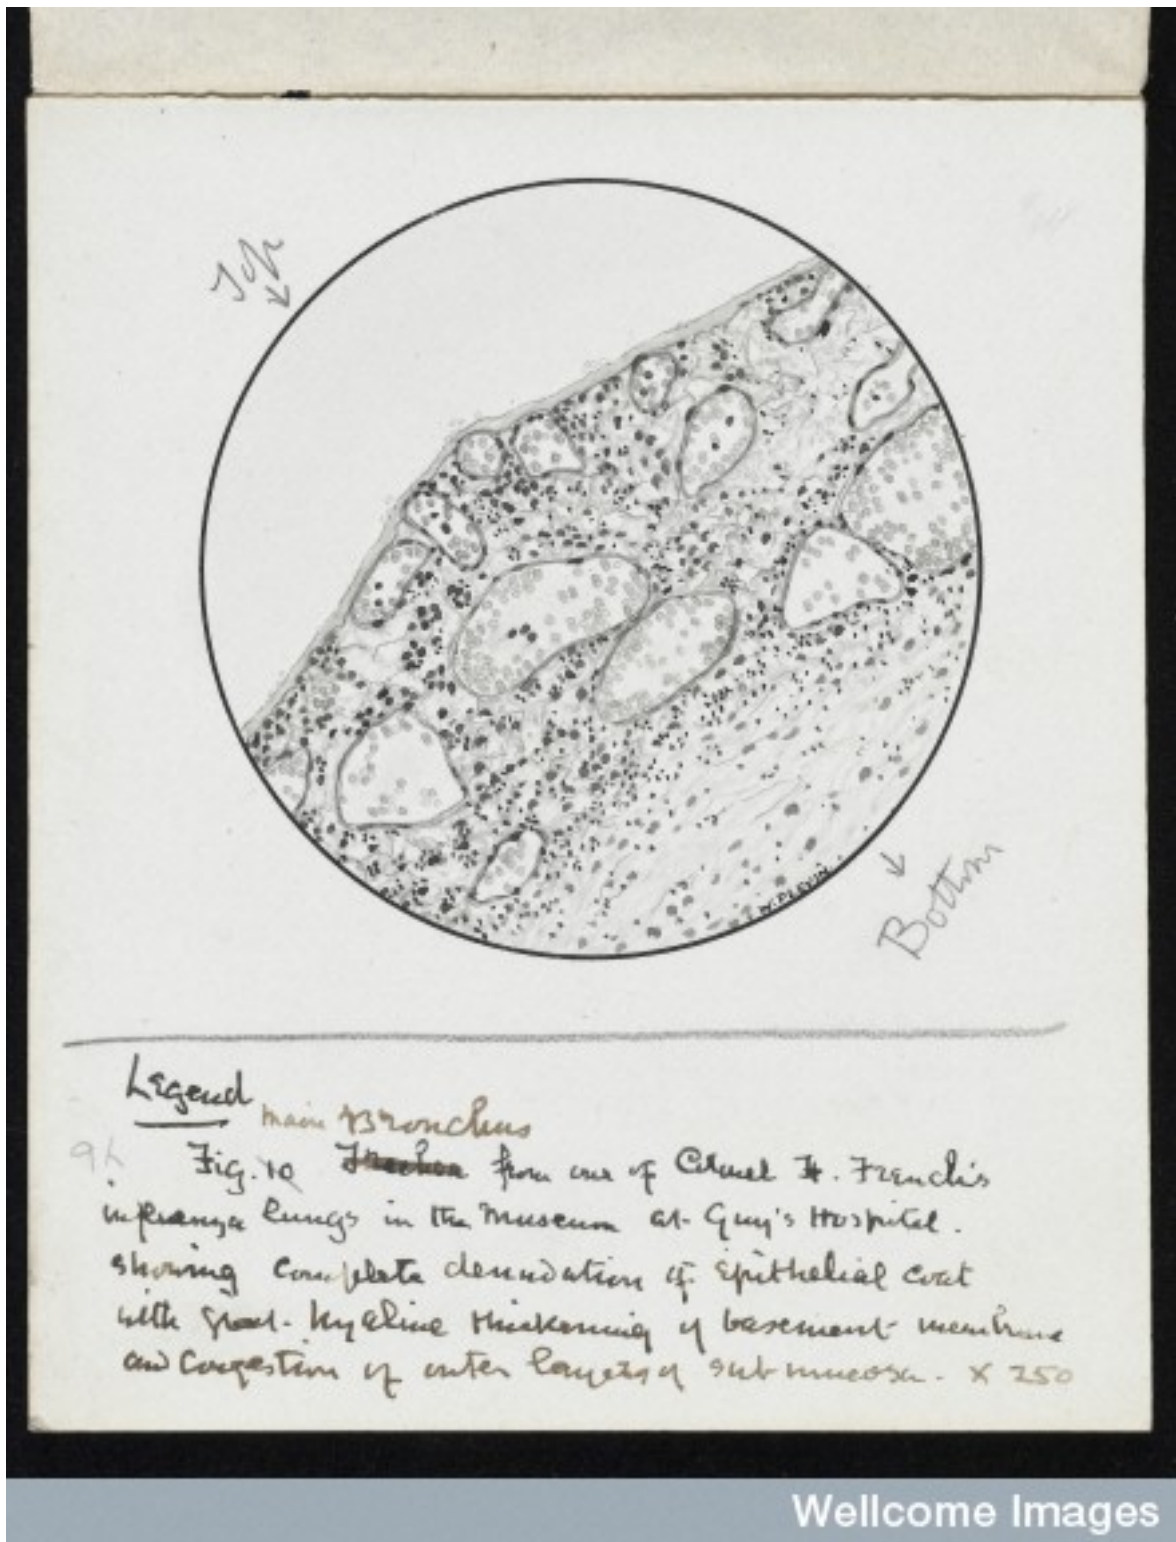 Top
T. W. P. LEVIN.
Bottom
Legend
main Bronchus
Fig. 10 from one of Colonel H. French's
influenza lungs in the Museum at Guy's Hospital.
showing complete denudation of epithelial coat
with great hyaline thickening of basement membrane
and congestion of outer layers of sub mucosa. X 250
Wellcome Images